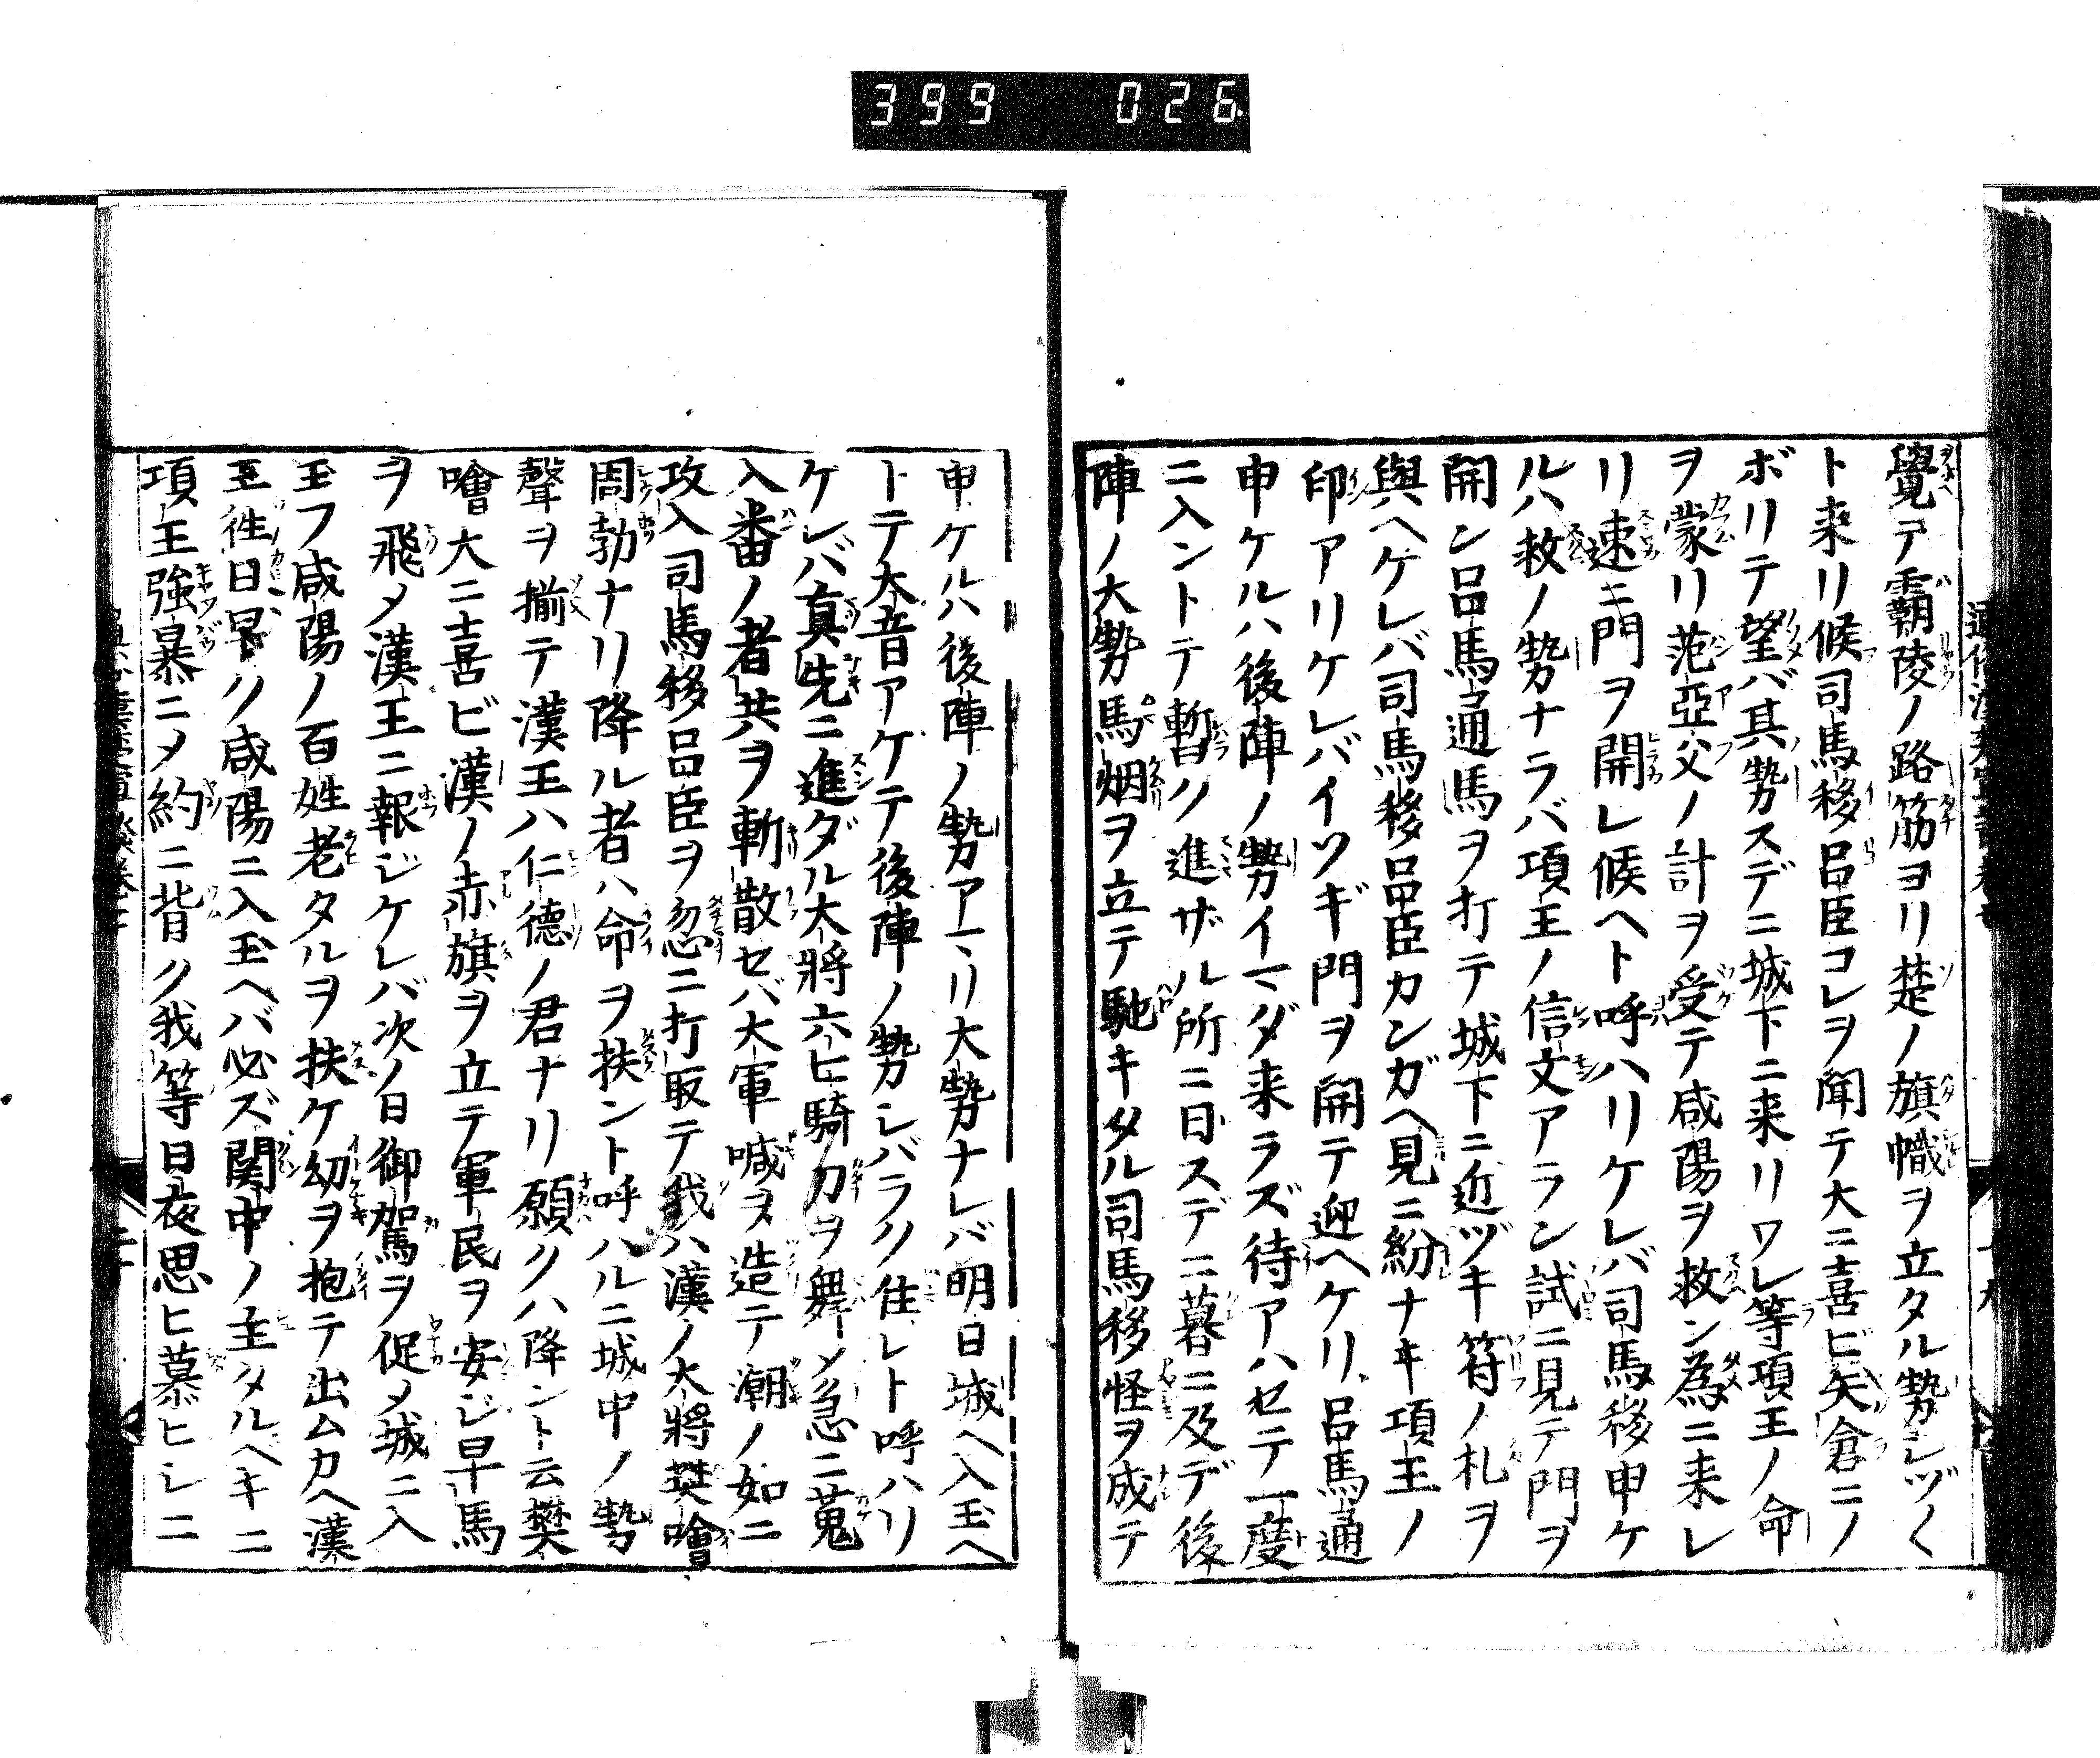 399 026
覺テ覇陵ノ路筋ヨリ楚ノ旗幟ヲ立タル勢シヅ〱
ト来リ候司馬移呂臣コレヲ聞テ大ニ喜ビ矢倉ニノ
ボリテ望バ其勢スデニ城下ニ来リワレ等項王ノ命
ヲ蒙リ范亞父ノ計ヲ受テ咸陽ヲ救ン為ニ来レ
リ速ニ門ヲ開レ候ヘト呼ハリケレバ司馬移申ケ
ルハ救ノ勢ナラバ項王ノ信文アラン試ニ見テ門ヲ
開ン呂馬通馬ヲ打テ城下ニ近ヅキ符ノ札ヲ
與ヘケレバ司馬移呂臣カンガヘ見ニ紛ナキ項王ノ
印アリケレバイソギ門ヲ開テ迎ヘケリ呂馬通
申ケルハ後陣ノ勢イマダ来ラズ待アハセテ一度
ニ入ントテ暫ク進ザル所ニ日スデニ暮ニ及デ後
陣ノ大勢馬烟ヲ立テ馳キタル司馬移怪ヲ成テ
申ケルハ後陣ノ勢アマリ大勢ナレバ明日城ヘ入玉ヘ
トテ大音アケテ後陣ノ勢シバラク住レト呼ハリ
ケレバ真先ニ進ダル大將六七騎刀ヲ舞ノ急ニ蒐
入番ノ者共ヲ斬散セバ大軍喊ヲ造テ潮ノ如ニ
攻入司馬移呂臣ヲ忽ニ打取テ我ハ漢ノ大將樊噲
周勃ナリ降ル者ハ命ヲ扶ント呼ハルニ城中ノ勢
聲ヲ揃テ漢王ハ仁德ノ君ナリ願クハ降ント云樊
噲大ニ喜ビ漢ノ赤旗ヲ立テ軍民ヲ安ジ早馬
ヲ飛メ漢王ニ報ジケレバ次ノ日御駕ヲ促メ城ニ入
玉フ咸陽ノ百姓老タルヲ扶ケ幼ヲ抱テ出ムカヘ漢
王徃日早ク咸陽ニ入玉ヘバ必ズ関中ノ主タルヘキニ
項王強暴ニメ約ニ背ク我等日夜思ヒ慕ヒシニ